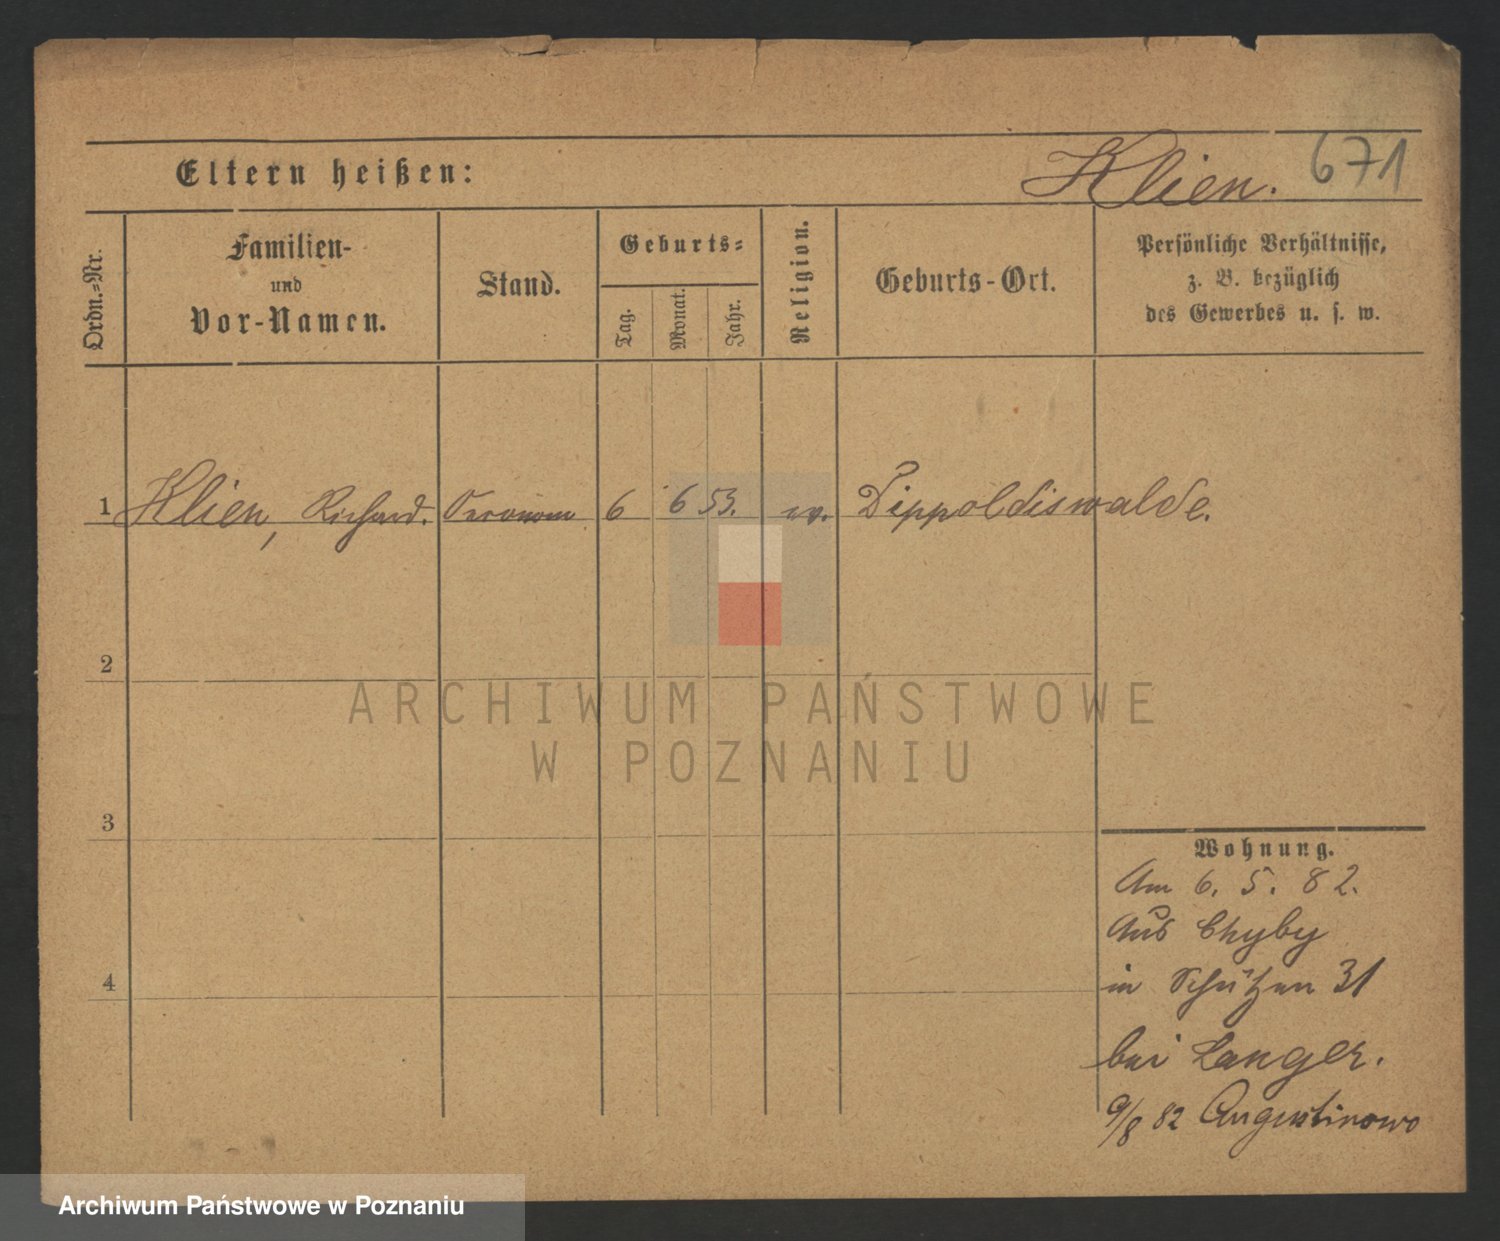 Eltern heißen:
Klien. 671
Ordn.-Nr.
Familien-
und
Vor-Namen.
Stand.
Geburts-
Tag.
Monat.
Jahr.
Religion.
Geburts-Ort.
Persönliche Verhältnisse,
z. B. bezüglich
des Gewerbes u. s. w.
1 Klien, Richard. 6 6 53. ev. Dippoldiswalde.
2
ARCHIWUM PAŃSTWOWE
W POZNANIU
3
4
Wohnung.
Am 6. 5. 82.
Aus Chyby
in Schützen 31
bei Langer.
9/8 82 Augustinowo
Archiwum Państwowe w Poznaniu